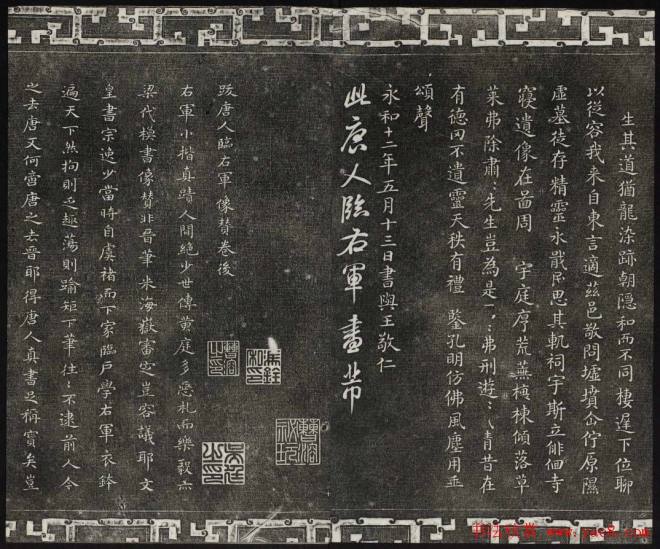 生其道猶龍染跡朝隱和而不同棲遲下位聊
以從容我来自東言適茲邑敬問墟墳企佇原隰
虛墓徒存精靈永戢民思其軌祠宇斯立俳佪寺
寢遺像在啚周宇庭序荒蕪榱棟傾落草
萊弗除肅〻先生豈為是〻〻弗刑遊〻青昔在
有德罔不遺靈天秩有禮鑒孔明仿佛風塵用垂
頌聲
永和十二年五月十三日書與王敬仁
此唐人臨右軍畫
跋唐人臨右軍像贊卷後
右軍小楷真蹟人間絕少世傳黃庭多惡札而樂毅亦
梁代模書像贊非晉筆米海嶽審定豈容議耶文
皇書宗逸少當時自虞褚而下家臨戶學右軍衣鉢
遍天下然拘則乏趣蕩則踰矩下筆往〻不逮前人今
之去唐又何啻唐之去晉耶得唐人真書足稱寶矣豈
书法欣赏 www.yac8.com